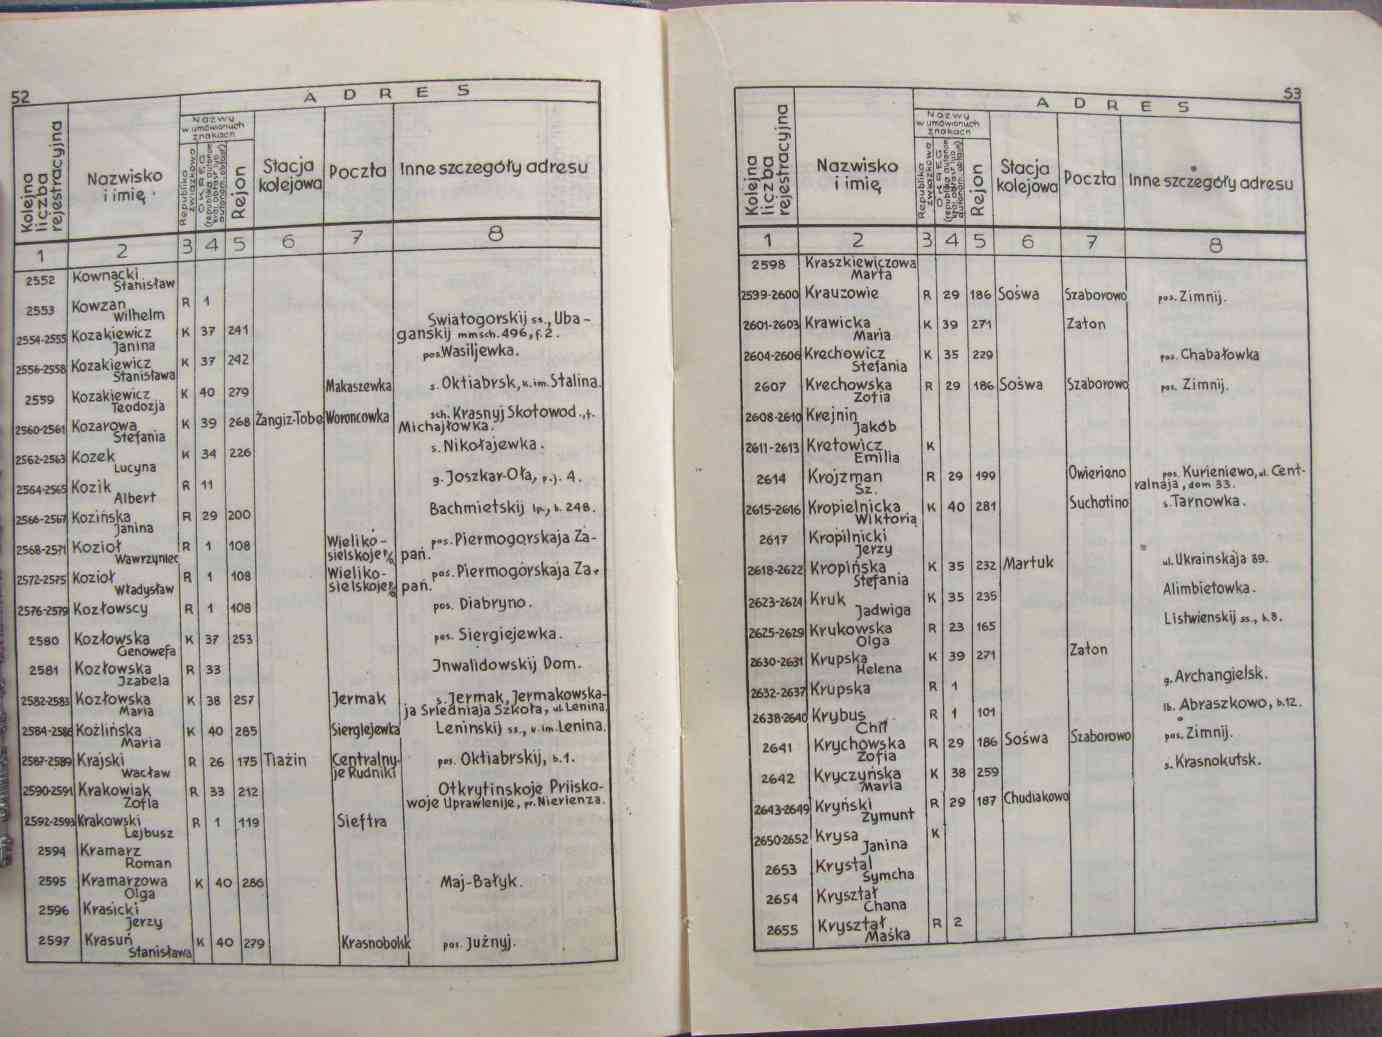 52
A D R E S
Kolejna liczba rejestracyjna
Nazwisko i imię
Nazwy w umówionych znakach
Republika związkowa
OKRĘG
Rejon
Stacja kolejowa
Poczta
Inne szczegóły adresu
1 2 3 4 5 6 7 8
2552 Kownacki Stanisław
2553 Kowzan Wilhelm R 1
2554-2555 Kozakiewicz Janina K 37 241 Swiatogorskij ss., Uba-
ganskij mmsch. 496, f. 2.
2556-2558 Kozakiewicz Stanisława K 37 242 pos. Wasiljewka.
2559 Kozakiewicz Teodozja K 40 279 Makaszewka s. Oktiabrsk, k. im. Stalina.
2560-2561 Kozarowa Stefania K 39 268 Żangiz-Tobe Woroncowka sch. Krasnyj Skotowod, f.
Michajłowka.
2562-2563 Kozek Lucyna K 34 226 s. Nikołajewka.
2564-2565 Kozik Albert R 11 g. Joszkar-Oła, p.j. 4.
2566-2567 Kozińska Janina R 29 200 Bachmietskij lp., b. 248.
2568-2571 Kozioł Wawrzyniec R 1 108 Wieliko-
sielskoje pos. Piermogorskaja Za-
pań.
2572-2575 Kozioł Władysław R 1 108 Wieliko-
sielskoje pos. Piermogorskaja Za-
pań.
2576-2579 Kozłowscy R 1 108 pos. Diabryno.
2580 Kozłowska Genowefa K 37 253 pos. Siergiejewka.
2581 Kozłowska Jzabela R 33 Jnwalidowskij Dom.
2582-2583 Kozłowska Maria K 38 257 Jermak s. Jermak, Jermakowska-
ja Sriedniaja Szkoła, ul. Lenina.
2584-2586 Koźlińska Maria K 40 285 Siergiejewka Leninskij ss., k. im. Lenina.
2587-2589 Krajski Wacław R 26 175 Tiażin Centralny-
je Rudniki pos. Oktiabrskij, b. 1.
2590-2591 Krakowiak Zofia R 33 212 Otkrytinskoje Priisko-
woje Uprawlenije, pr. Nierienza.
2592-2593 Krakowski Lejbusz R 1 119 Sieftra
2594 Kramarz Roman
2595 Kramarzowa Olga K 40 286 Maj-Bałyk.
2596 Krasicki Jerzy
2597 Krasuń Stanisława K 40 279 Krasnobolsk pos. Jużnyj.
53
A D R E S
Kolejna liczba rejestracyjna
Nazwisko i imię
Nazwy w umówionych znakach
Republika związkowa
OKRĘG
Rejon
Stacja kolejowa
Poczta
Inne szczegóły adresu
1 2 3 4 5 6 7 8
2598 Kraszkiewiczowa Marta
2599-2600 Krauzowie R 29 186 Sośwa Szaborowo pos. Zimnij.
2601-2603 Krawicka Maria K 39 271 Zaton
2604-2606 Krechowicz Stefania K 35 229 pos. Chabałowka
2607 Krechowska Zofia R 29 186 Sośwa Szaborowo pos. Zimnij.
2608-2610 Krejnin Jakób
2611-2613 Kretowicz Emilia K
2614 Krojzman Sz. R 29 199 Owieriano pos. Kurieniewo, ul. Cent-
ralnaja, dom 33.
2615-2616 Kropielnicka Wiktoria K 40 281 Suchotino s. Tarnowka.
2617 Kropilnicki Jerzy
2618-2622 Kropińska Stefania K 35 232 Martuk ul. Ukrainskaja 89.
2623-2624 Kruk Jadwiga K 35 235 Alimbietowka.
2625-2629 Krukowska Olga R 23 165 Listwienskij ss., b. 8.
2630-2631 Krupska Helena K 39 271 Zaton
2632-2637 Krupska R 1 g. Archangielsk.
2638-2640 Krybus Chil R 1 101 lb. Abraszkowo, b. 12.
2641 Krychowska Zofia R 29 186 Sośwa Szaborowo pos. Zimnij.
2642 Kryczyńska Maria K 38 259 s. Krasnokutsk.
2643-2649 Kryński Zygmunt R 29 187 Chudiakowo
2650-2652 Krysa Janina K
2653 Krystal Symcha
2654 Kryształ Chana
2655 Kryształ Maśka R 2